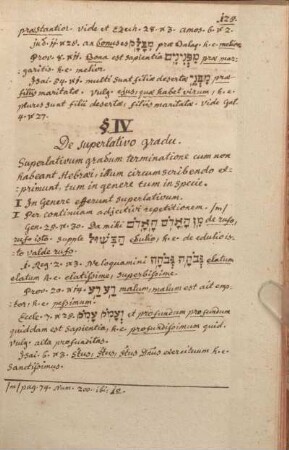 128.
præstantior. vide et Ezech. 28. v. 3. Amos. 6. v. 2.
jud. 11. v. 25. an bonus es מִבָּלָק præ Balaq. h. e. melior.
Prov. 8. v. 11. Bona est sapientia מִפְּנִינִים præ mar-
garitis. h. e. melior.
Isai. 54. v. 1. multi sunt filii desertæ מִבְּנֵי præ
filiis maritatæ. Vulg. ejus quæ habet virum: h. e.
plures sunt filii desertæ, filiis maritatæ. vide Gal.
4. v. 27.
§ IV
De superlativo gradu.
Superlativum gradum terminatione cum non
habeant Hebræi, illum circumscribendo ex-
primunt, tum in genere tum in specie.
I In Genere efferunt superlativum.
1 Per continuam adjectivi repetitionem. /m/
Gen. 25. v. 30. Da mihi מִן הָאָדֹם הָאָדֹם de rufo,
rufo isto. supple הַבִּשּׁוּל ebulio, h. e. de edulio is-
to valde rufo.
1. Reg. 2. v. 3. Ne loquamini גְּבֹהָה גְּבֹהָה elatum
elatum h. e. elatissime, superbissime.
Prov. 20. v. 14. רַע רַע malum, malum est ait emp-
tor; h. e. pessimum.
Eccle. 7. v. 25. וְעָמֹק עָמֹק et profundum profundum
quiddam est sapientia; h. e. profundissimum quid.
Vulg. alta profunditas.
Isai. 6. v. 3. Stus, Stus, Stus Dñus exercituum h. e.
sanctissimus.
/m/ pag. 74. Num. 200. ibi;